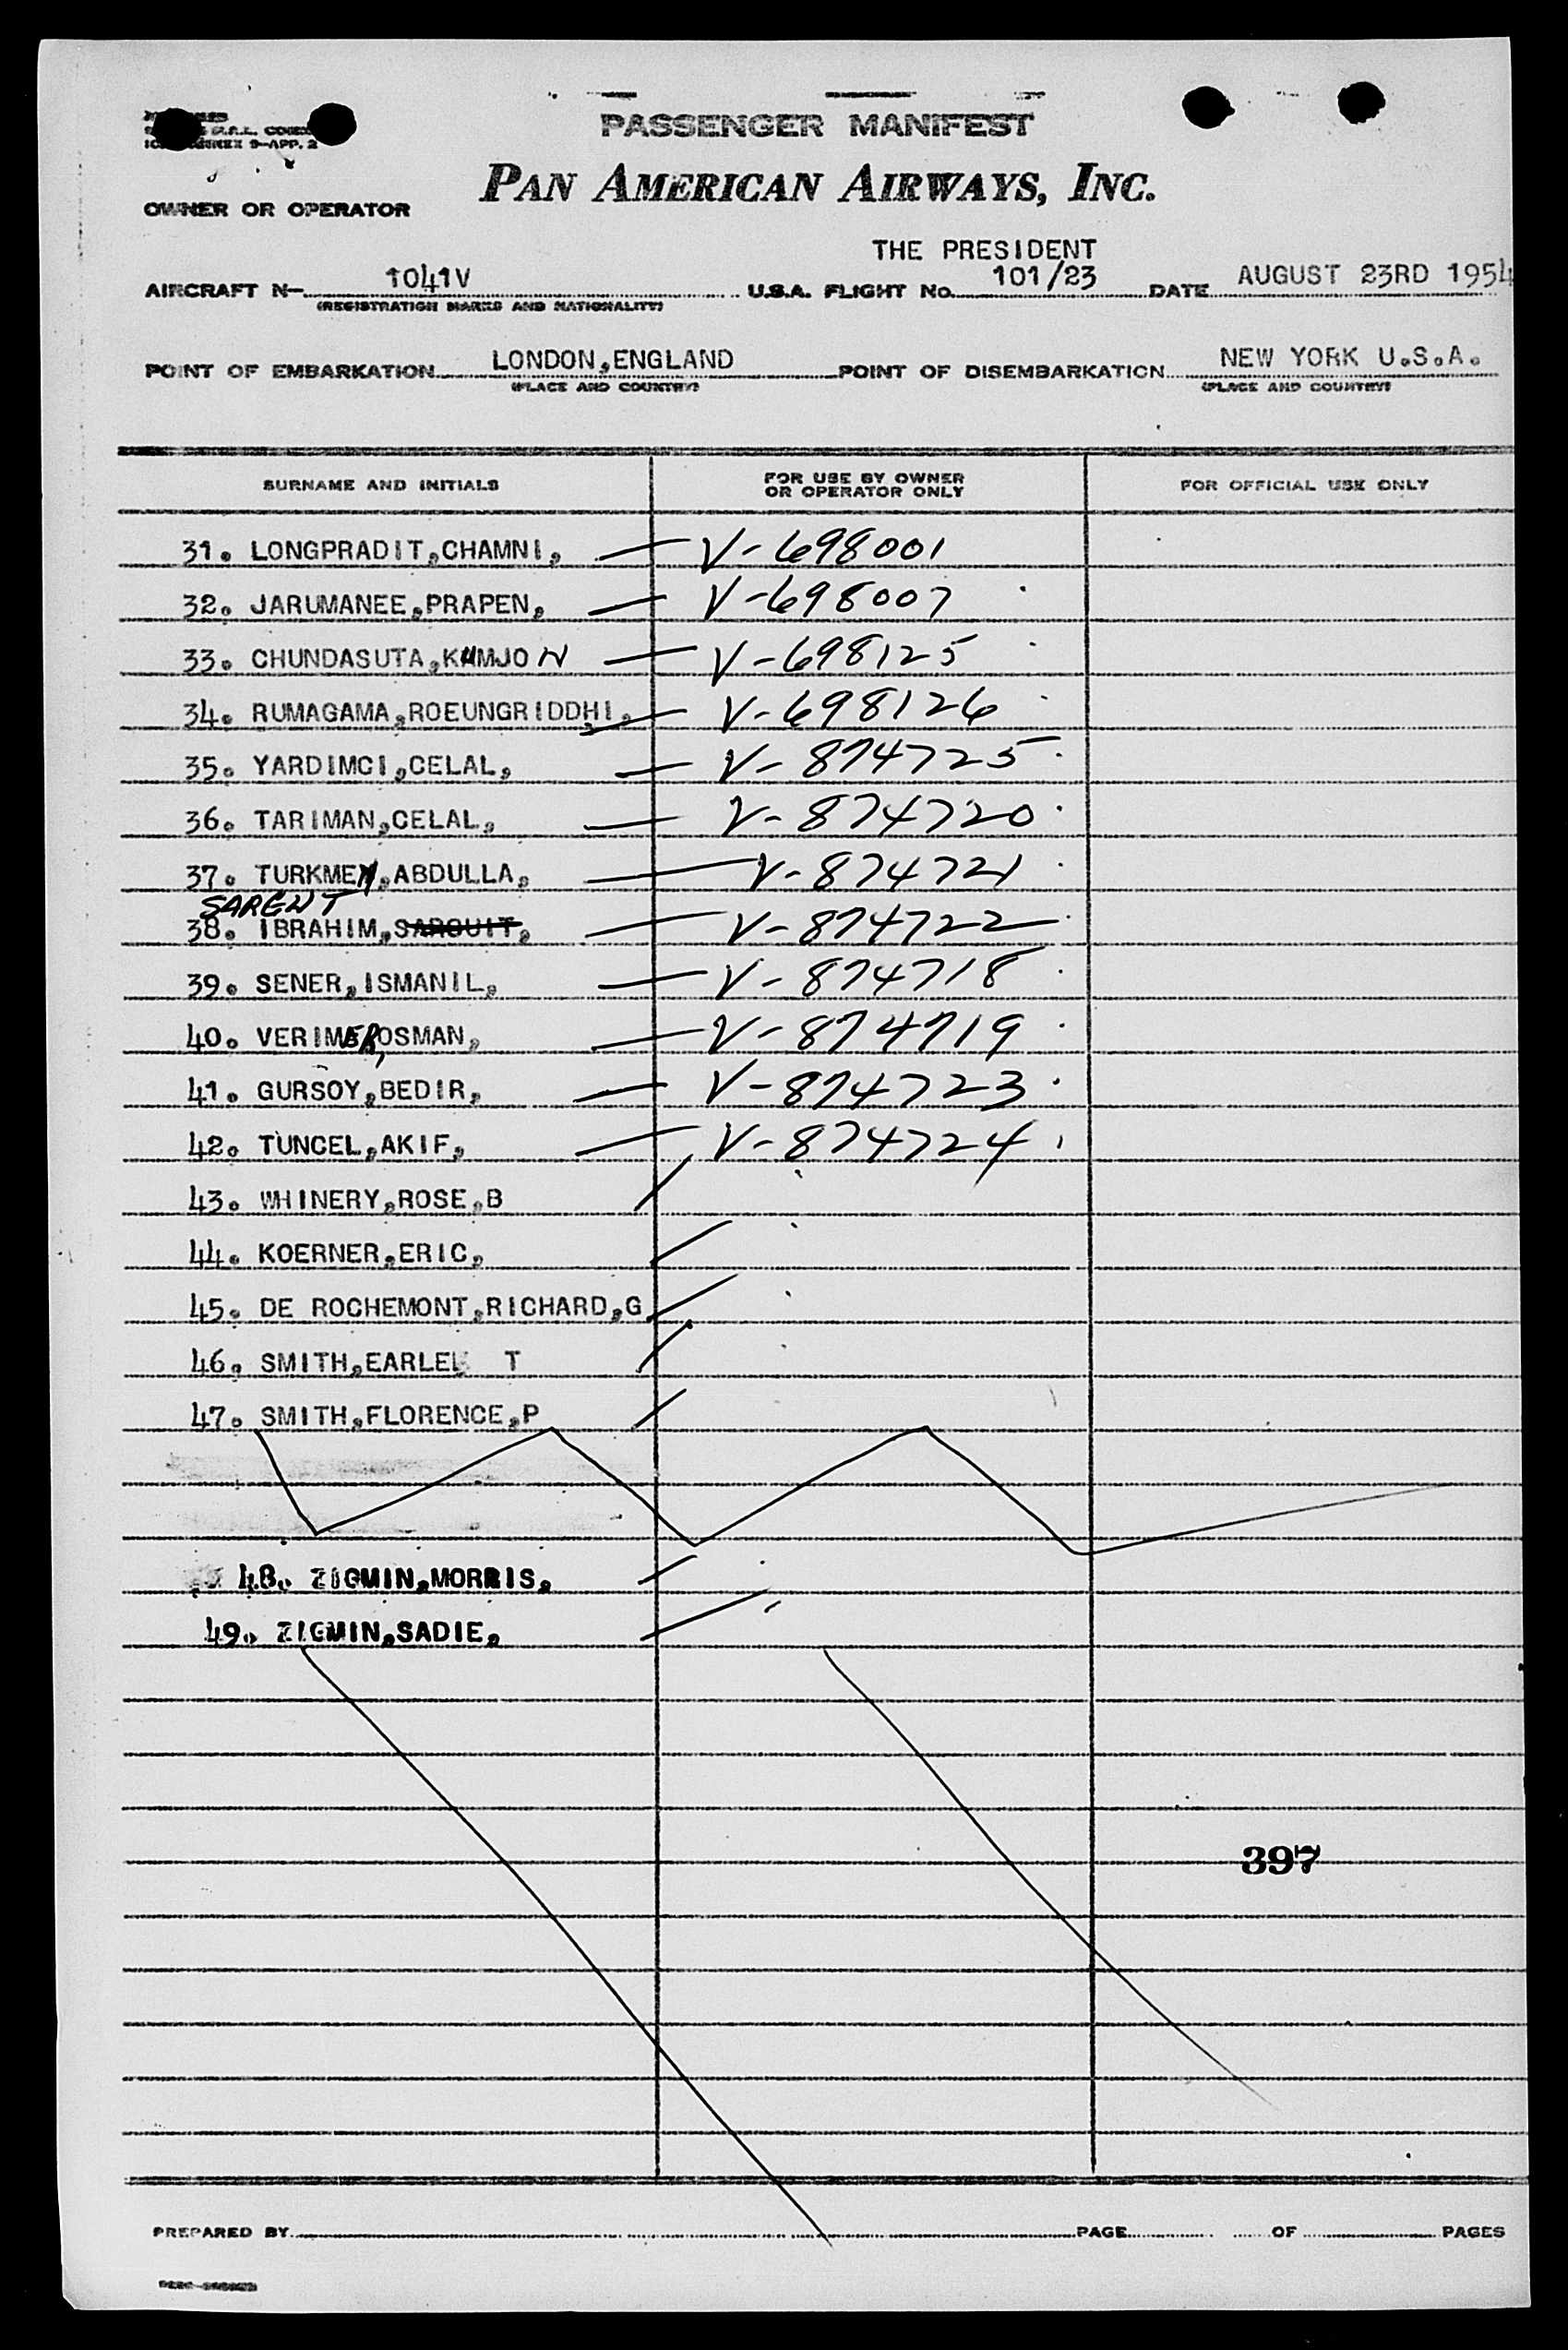 PASSENGER MANIFEST
PAN AMERICAN AIRWAYS, INC.
9-APP. 2
OWNER OR OPERATOR
THE PRESIDENT
AIRCRAFT N- 1041V U.S.A. FLIGHT No. 101/23 DATE AUGUST 23RD 1954
(REGISTRATION MARKS AND NATIONALITY)
POINT OF EMBARKATION LONDON,ENGLAND POINT OF DISEMBARKATION NEW YORK U.S.A.
(PLACE AND COUNTRY) (PLACE AND COUNTRY)
SURNAME AND INITIALS FOR USE BY OWNER OR OPERATOR ONLY FOR OFFICIAL USE ONLY
31. LONGPRADIT,CHAMNI, V-698001
32. JARUMANEE,PRAPEN, V-698007
33. CHUNDASUTA,KHMJON V-698125
34. RUMAGAMA,ROEUNGRIDDHI, V-698126
35. YARDIMCI,CELAL, V-874725
36. TARIMAN,CELAL, V-874720
37. TURKMEN,ABDULLA, V-874721
SARENT
38. IBRAHIM,SARGUIT, V-874722
39. SENER,ISMANIL, V-874718
40. VERIMER,OSMAN, V-874719
41. GURSOY,BEDIR, V-874723
42. TUNCEL,AKIF, V-874724
43. WHINERY,ROSE,B
44. KOERNER,ERIC,
45. DE ROCHEMONT,RICHARD,G
46. SMITH,EARLE T
47. SMITH,FLORENCE,P
48. ZIGMIN,MORRIS,
49. ZIGMIN,SADIE,
397
PREPARED BY PAGE OF PAGES